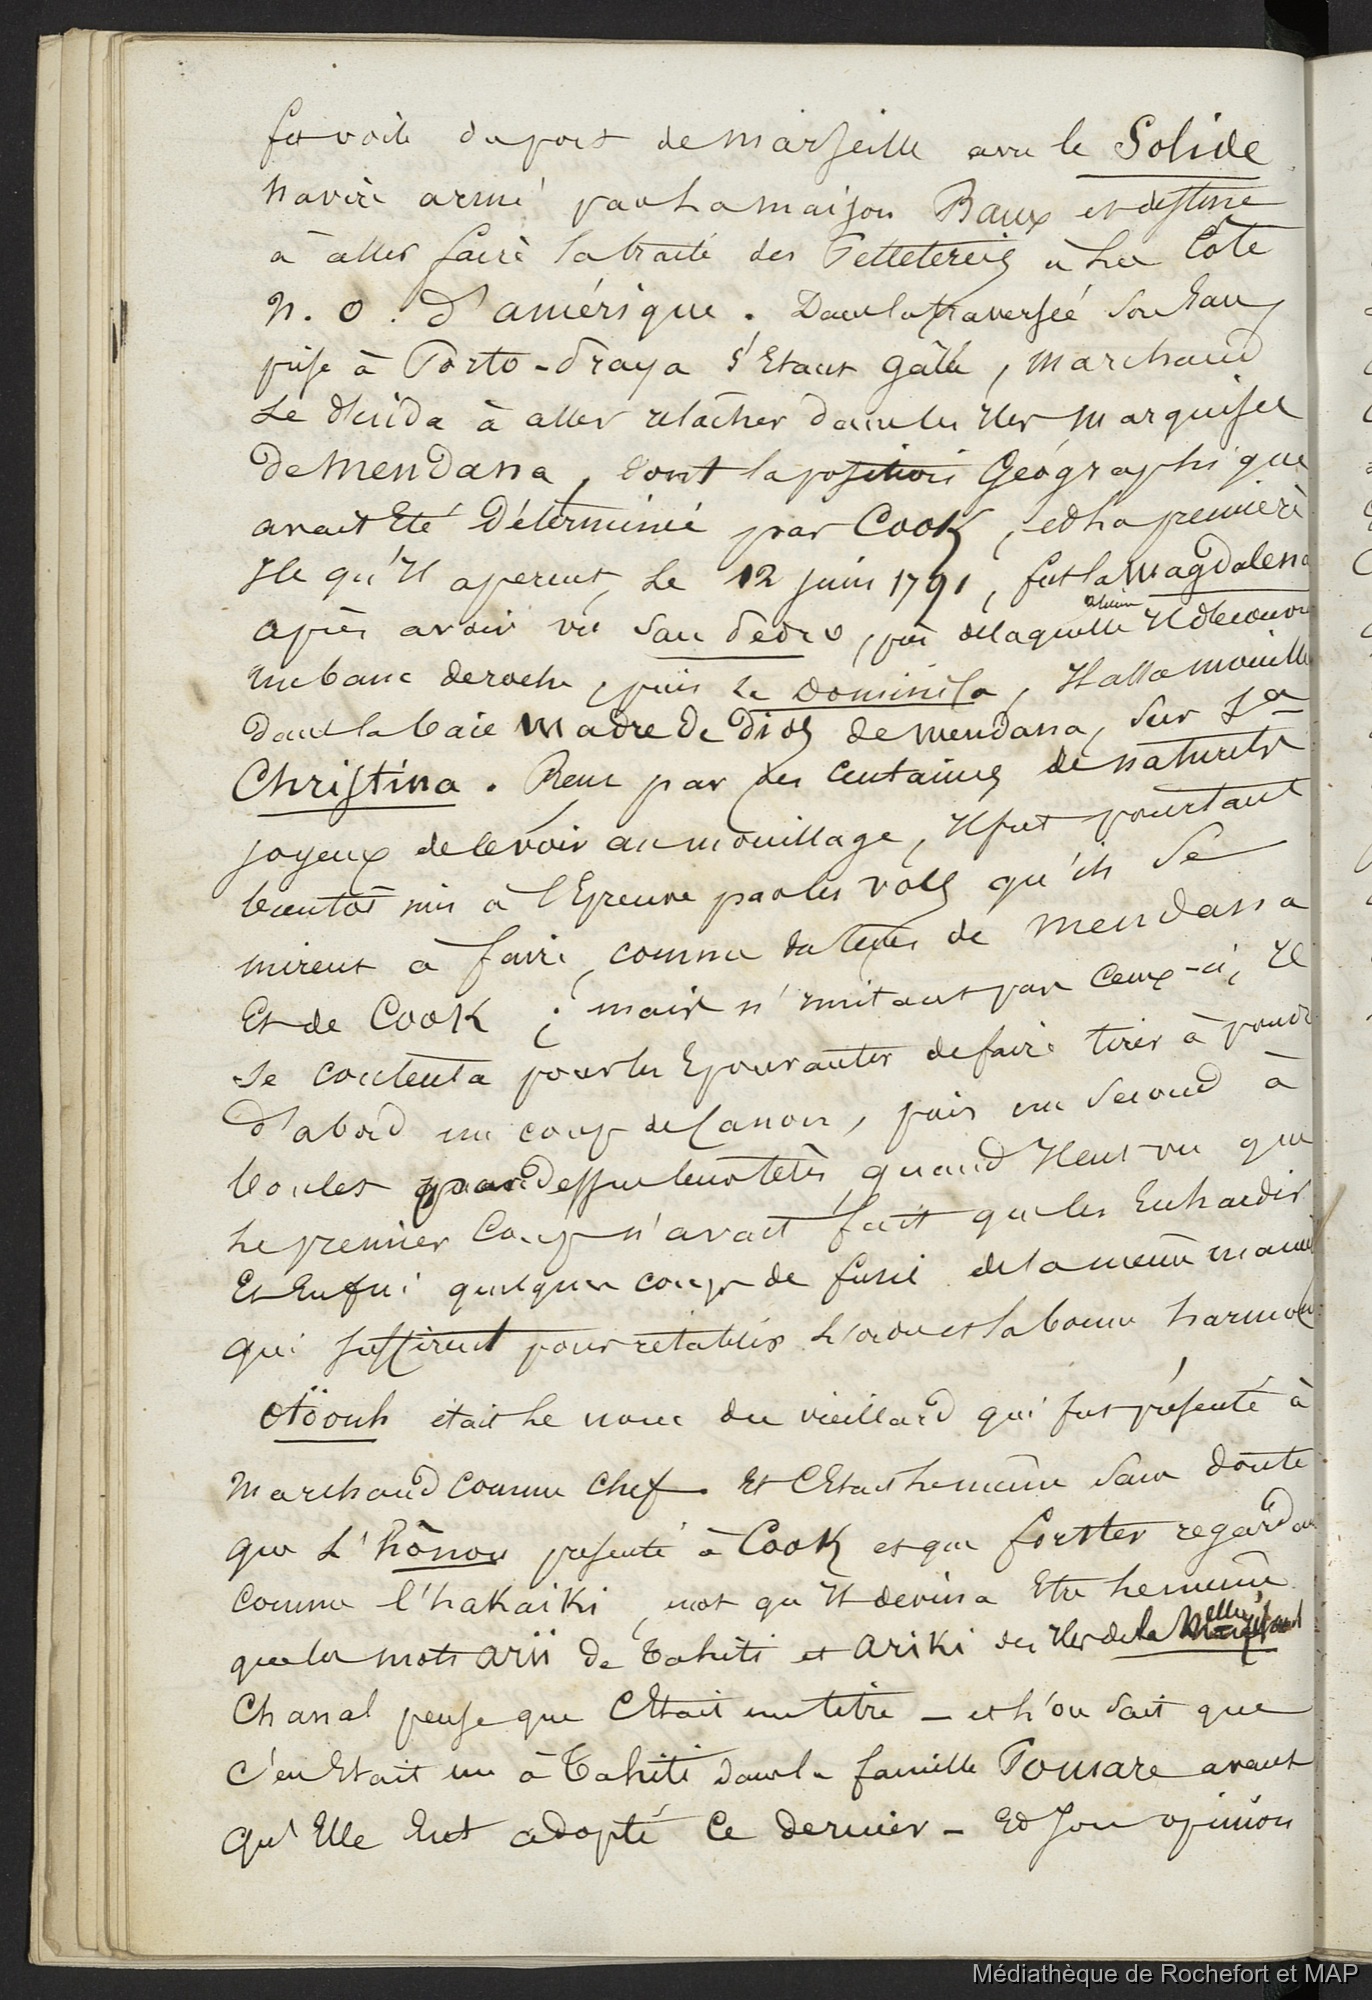 fit voile du port de Marseille avec le Solide
navire armé par la maison Baux et destiné
à aller faire la traite des Pelleteries à la Côte
N. O. d'amérique. Dans la traversée son Eau
prise à Porto-Praya s'Etant gâtée, Marchand
se décida à aller relâcher dans les Iles Marquises
de Mendana, dont la position Géographique
avait Eté Déterminée par Cook, et la première
Ile qu'Il aperçut, le 12 juin 1791, fut la Magdalena
après avoir vu San Pedro, près de laquelle Il découvrit
un banc de roche, puis la Dominica, Il alla mouiller
dans la baie Madre de Dios de Mendana, sur Sta
Christina. Reçu par des Centaines de naturels
joyeux de le voir au mouillage, Il fut pourtant
bientôt mis à l'Epreuve par les vols qu'ils se
mirent à faire, comme du temps de Mendana
Et de Cook ; mais n'imitant pas Ceux-ci, Il
se contenta pour les Epouvanter de faire tirer à poudre
d'abord un coup de Canon, puis un second à
boulet par dessus leurs têtes, quand Il eut vu que
le premier Coup n'avait fait que les Enhardir
Et Enfin quelques coups de fusil de la même manière
qui suffirent pour rétablir l'ordre et la bonne harmonie
Otöouh était le nom du vieillard qui fut présenté à
Marchand comme Chef. Et C'Etait le même sans doute
que L'hönou présenté à Cook et que Forster regarda
comme l'hakaïki, mot qu'Il devina Etre le même
que les mots arii de Tahiti et Ariki des Iles de la
Chanal pense que C'Etait un titre - et l'on sait que
C'en Etait un à Tahiti dans la famille Pomare avant
qu'Elle Eut adopté Ce dernier - Et son opinion
Médiathèque de Rochefort et MAP